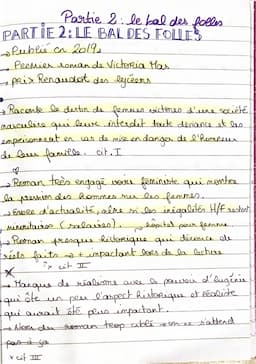 Partie 2 : le bal des folles
PARTIE 2 : LE BAL DES FOLLES
→ Publié en 2019
→ Premier roman de Victoria Mas
→ prix Renaudot des lycéens
→ Raconte le destin de femmes victimes d'une société
masculine qui leur interdit toute déviance et les
emprisonnent en cas de mise en danger de l'honneur
de leur famille. cit. I
→ Roman très engagé voire féministe qui montre
la pression des hommes sur les femmes.
→ d'actualité, même si les inégalités H/F restent
minoritaires (salaires). hôpital pour femme
→ Roman presque historique qui dénonce de
réels faits → + impactant lors de la lecture
* cit II
→ Manque de réalisme avec le pouvoir d'Eugénie
qui ôte un peu l'aspect historique et réaliste
qui aurait été plus important.
→ Nom du roman trop ciblé → on s'attend
pas à ça
* cit III